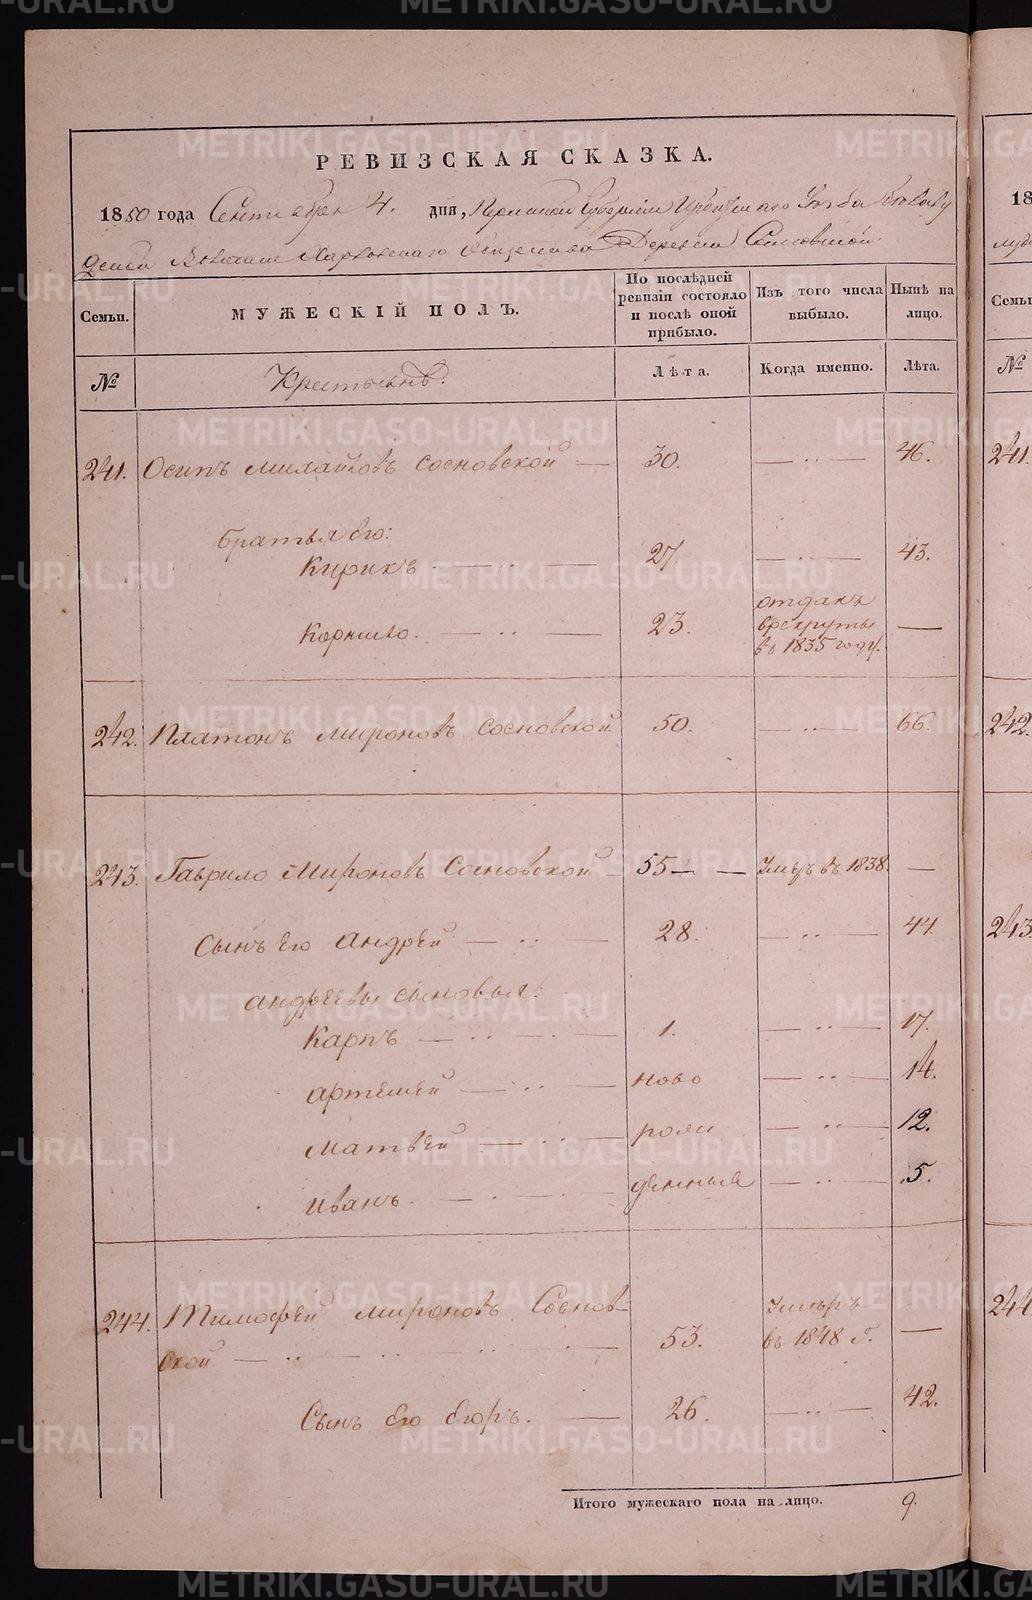 РЕВИЗСКАЯ СКАЗКА.
1850 года Сентября 4. дня, Пермской Губернии Ирбитскаго Уезда
Волости Харловскаго Общества Деревни Сосновской
Семьи.
МУЖЕСКІЙ ПОЛЪ.
По послѣдней ревизіи состояло и послѣ оной прибыло.
Изъ того числа выбыло.
Нынѣ на лицо.
№
Крестьянъ.
Лѣта.
Когда именно.
Лѣта.
241. Осипъ Михайловъ Сосновской — 30. — ·· — 46.
Братья его:
Кирикъ — ·· — 27. — ·· — 43.
Корнило. — ·· — 23. отданъ врекруты въ 1835 году. —
242. Платонъ Мироновъ Сосновской 50. — ·· — 66.
243. Гаврило Мироновъ Сосновской 55 — — Умеръ въ 1838. —
Сынъ его Андрей — ·· — 28. — ·· — 44
Андреевы сыновья:
Карпъ — ·· — ·· — 1. — ·· — 17.
Артемей — ·· — ново — ·· — 14.
Матвей — ·· — рож — ·· — 12.
Иванъ. — ·· — денныя — ·· — 5.
244. Тимофей Мироновъ Соснов-
ской — ·· — ·· — ·· — 53. Умеръ въ 1848 г. —
Сынъ его Егоръ. — 26. — ·· — 42.
Итого мужескаго пола на лицо. 9.
18
Семьи
№
241.
242.
243.
244
METRIKI.GASO-URAL.RU